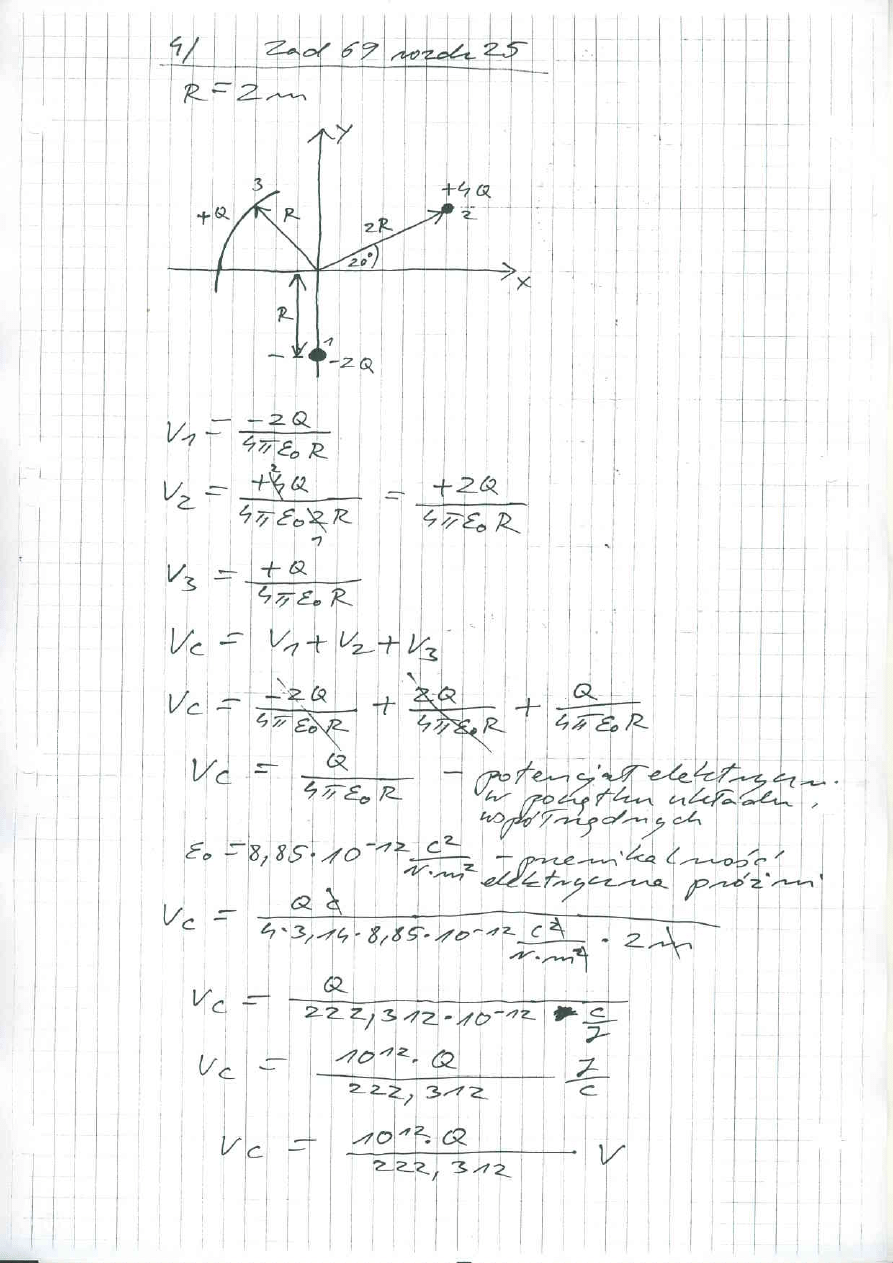 4/ Zad 69 rozdz 25
R = 2 m
Y
3
+4Q
+Q
R
2R
2
20°
X
R
1
-2Q
V1 = -2Q / 4πε₀R
V2 = +4Q / 4πε₀2R = +2Q / 4πε₀R
2
1
V3 = +Q / 4πε₀R
Vc = V1 + V2 + V3
Vc = -2Q / 4πε₀R + 2Q / 4πε₀R + Q / 4πε₀R
Vc = Q / 4πε₀R - potencjał elektryczn.
w początku układu
współrzędnych
ε₀ = 8,85·10⁻¹² C² / N·m² - przenikalność
elektryczna próżni
Vc = Q C / 4·3,14·8,85·10⁻¹² C² / N·m² · 2 m
Vc = Q / 222,312·10⁻¹² C/J
Vc = 10¹²·Q / 222,312 J/C
Vc = 10¹²·Q / 222,312 · V